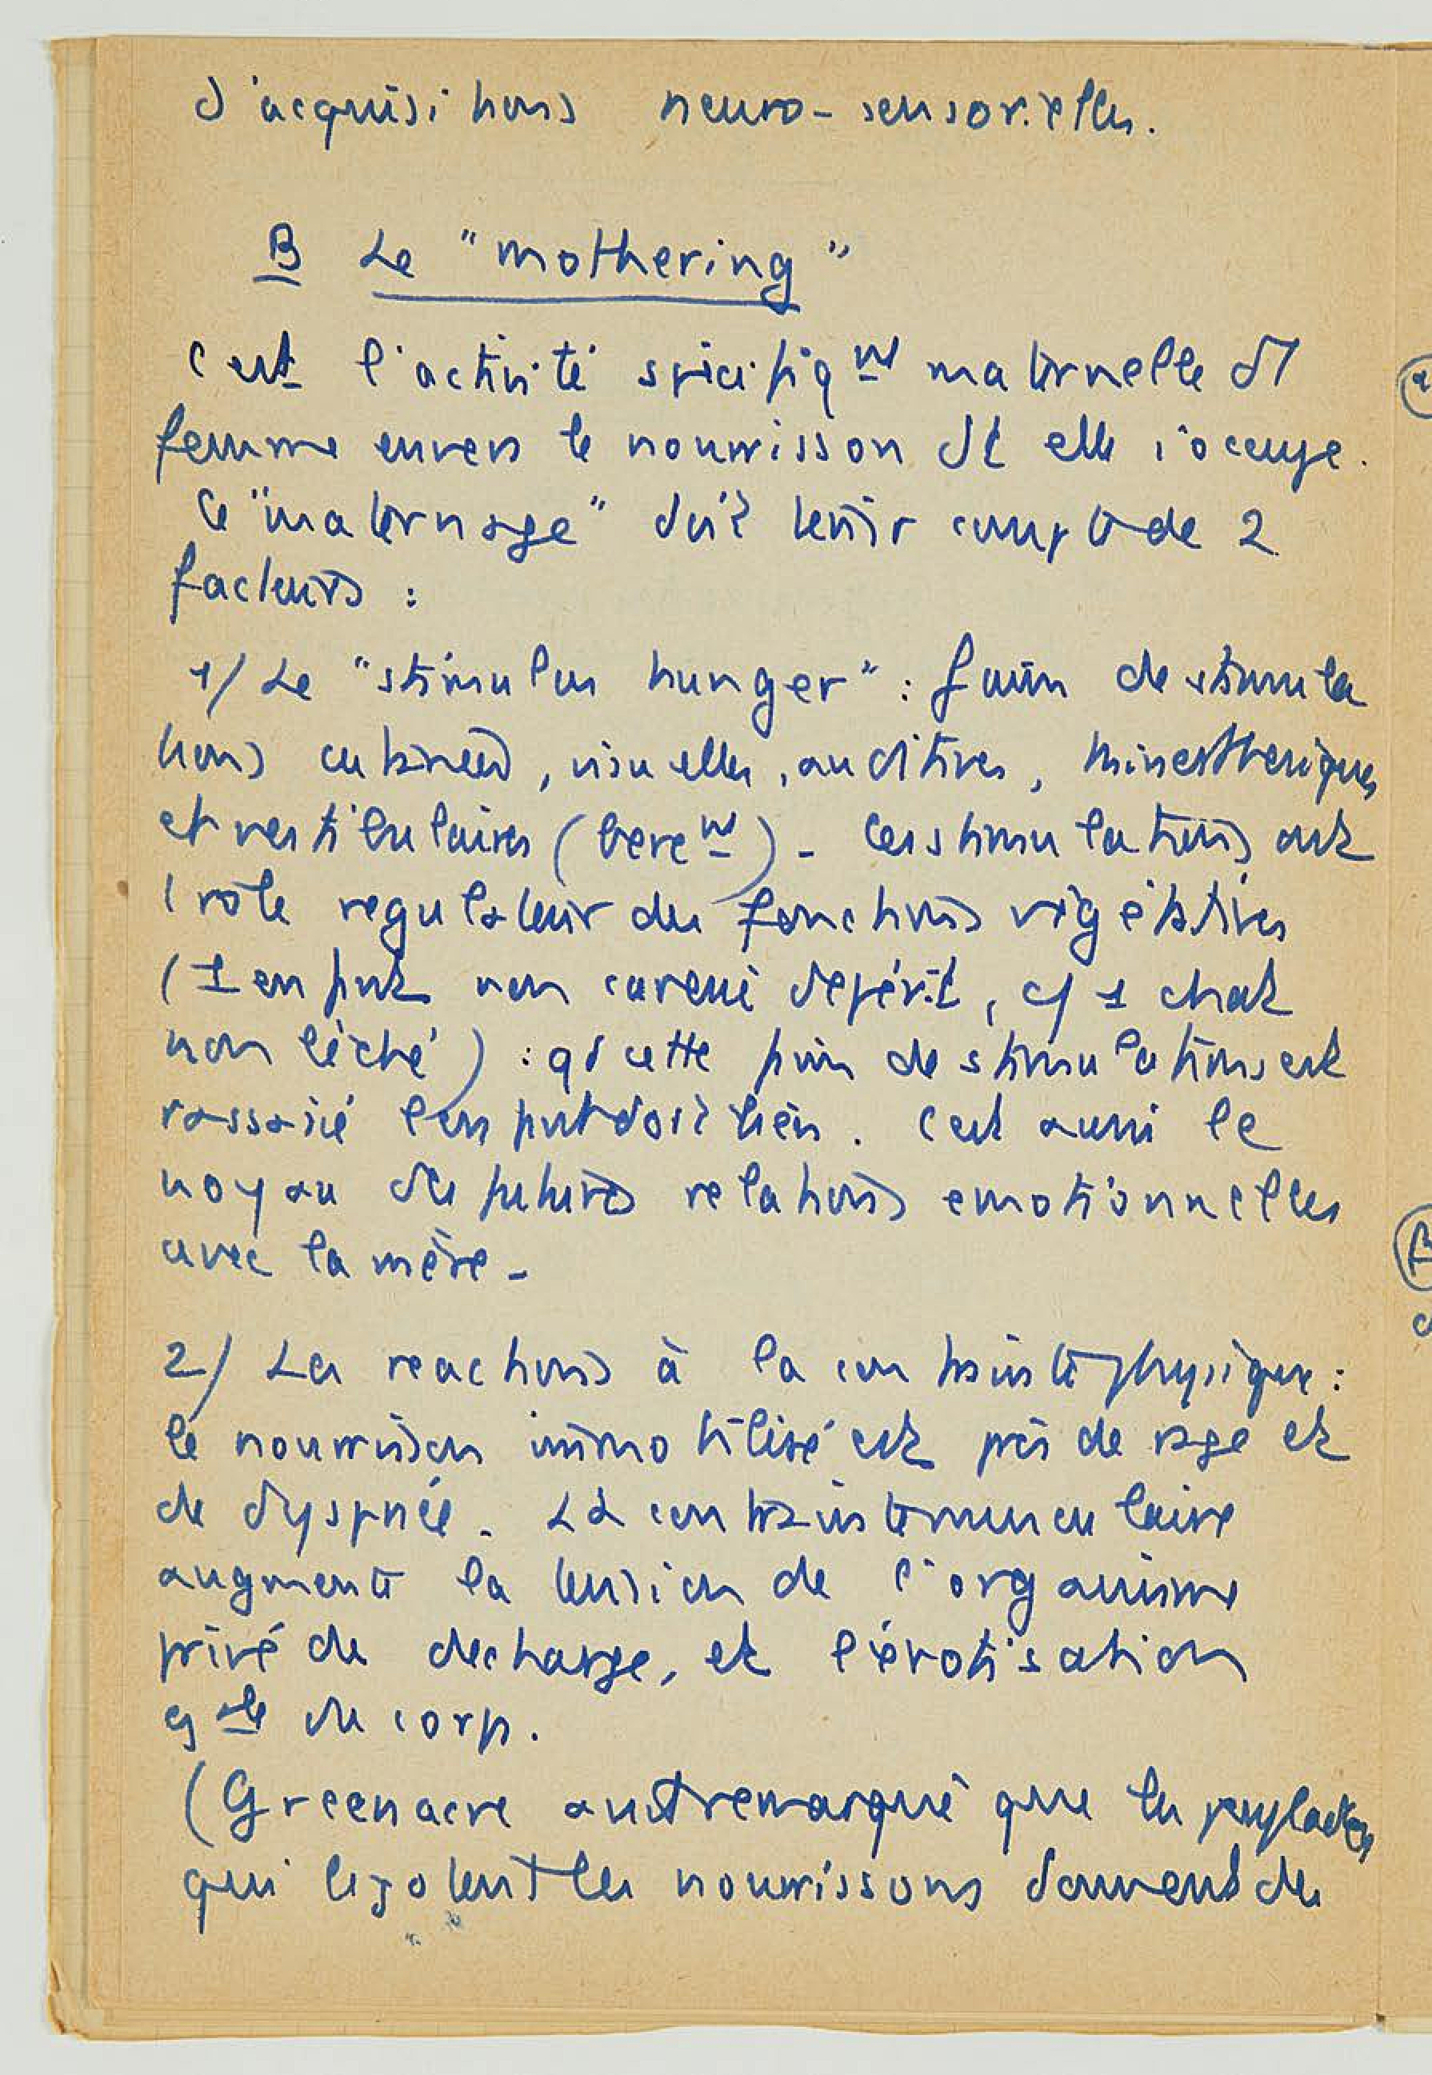 d'acquisitions neuro-sensorielles.
B Le "mothering"
C'est l'activité spécifiqmt maternelle d'1
femme envers le nourrisson dt elle s'occupe.
Ce "maternage" doit tenir compte de 2
facteurs :
1/ Le "stimulus hunger" : faim de stimula
tions cutanées, visuelles, auditives, kinesthesiques
et vestibulaires (bercemt) - Ces stimulations ont
1 rôle regulateur des fonctions végétatives
(1 enfant non caressé dépérit, c/ 1 chat
non léché) : qd cette faim de stimulations est
rassasié l'enfant dort bien. C'est aussi le
noyau des futures relations emotionnelles
avec la mère -
2/ Les reactions à la contrainte physique :
le nourrisson immobilisé est pris de rage et
de dyspnée. La contrainte musculaire
augmente la tension de l'organisme
privé de decharge, et l'érotisation
gale du corps.
(Greenacre avait remarqué que les peuplades
qui ligotent les nourrissons donnent des